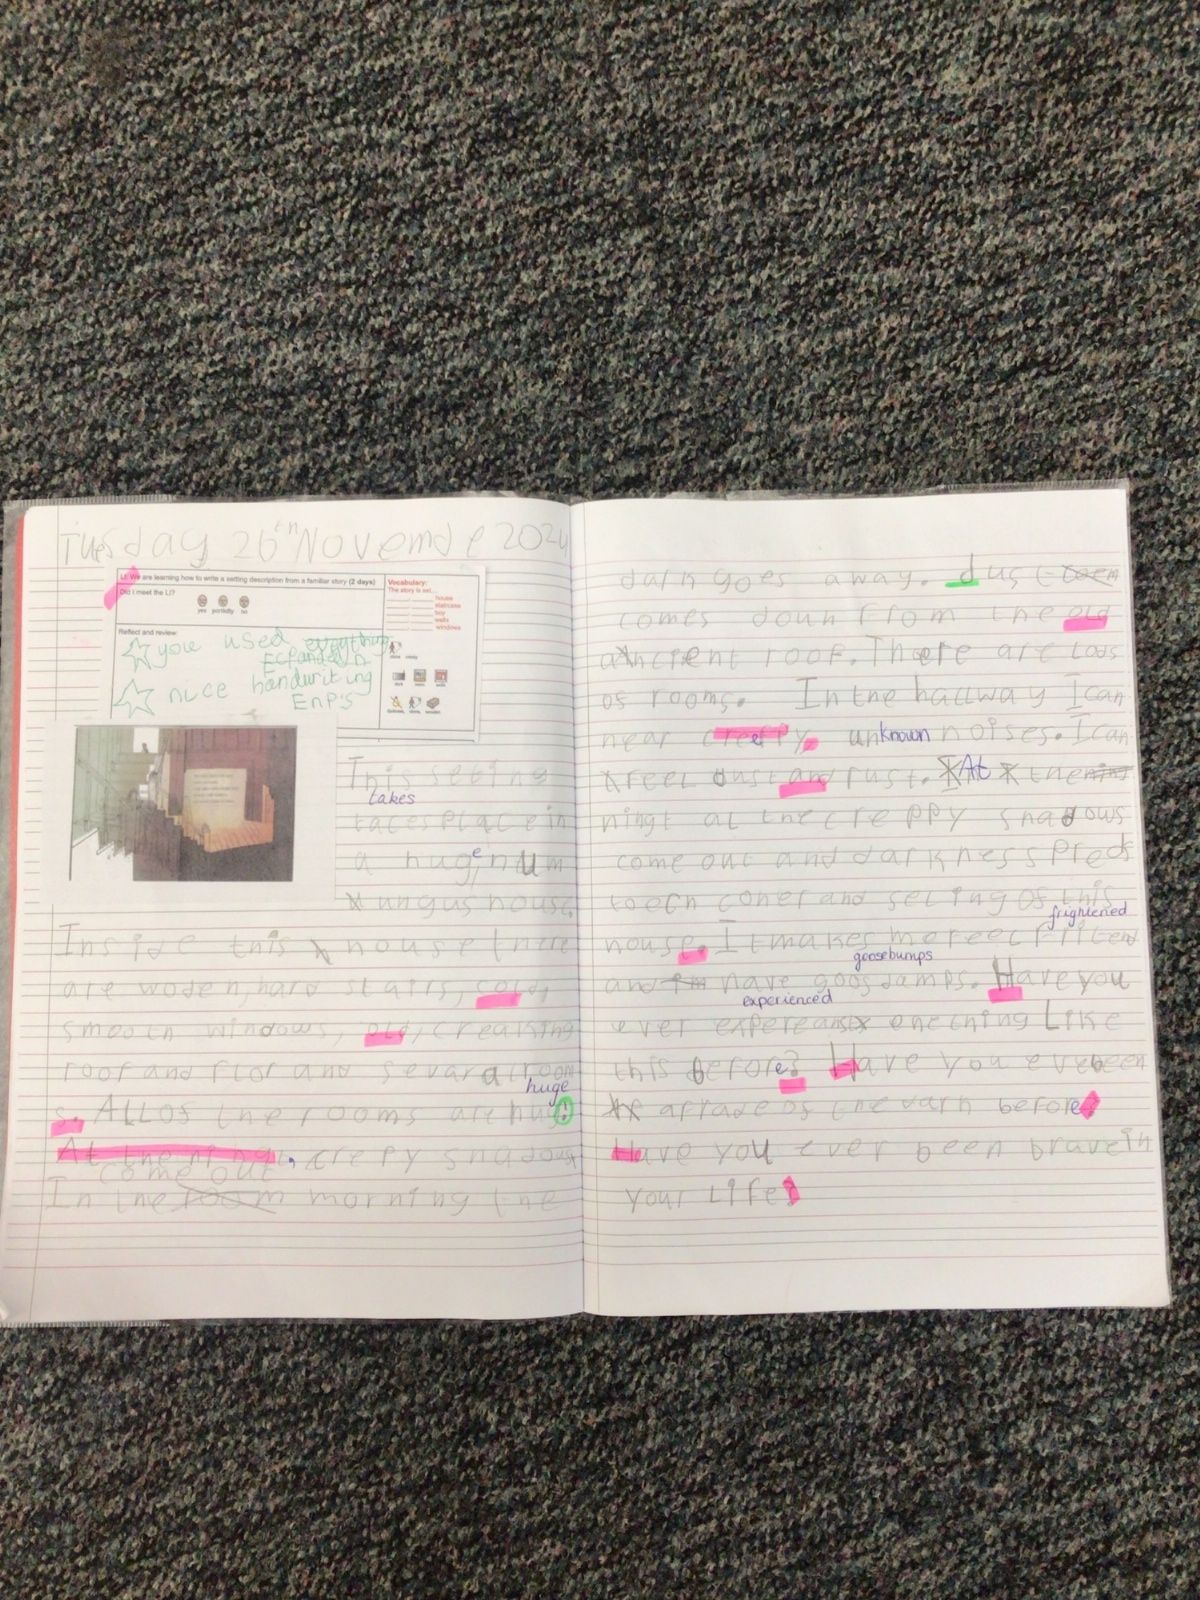 Tuesday 26th Novemde 2024
LI: We are learning how to write a setting description from a familiar story (2 days)
Did I meet the LI?
yes partially no
Reflect and review:
you used everything
Ecpanded n
nice handwriting
ENP's
Vocabulary:
The story is set...
house
staircase
boy
walls
windows
This seting
takes
taces place in
a huge, hum
ungus house.
Inside this house there
are woden, hard stairs, cold,
smooth windows, old, creaking
roof and flor and severalroom
huge
s. All of the rooms are hug.
At the night, crepy shadows
come out
In the room morning the
darn goes away. dust
comes doun from the old
ancient roof. There are lods
of rooms. In the hallway I can
hear creepy, unknown noises. I can
feel dust and rust. At the
night al the creppy shadows
come out and darkness preds
to ech coner and seling of this
frightened
house. It makes me feel fritend
goosebumps
and have goosdamps. Have you
experienced
ever onething Like
this before? Have you eve been
afrade of the darn before?
Have you ever been brave in
your Life?